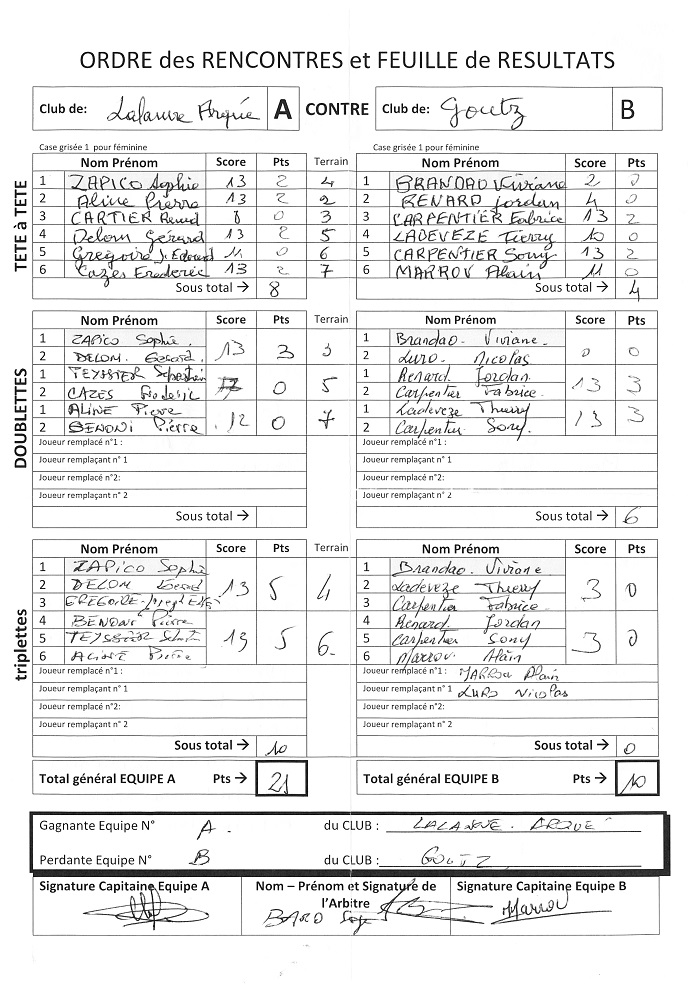 ORDRE des RENCONTRES et FEUILLE de RESULTATS
Club de: Lalanne Arquée A CONTRE Club de: Goutz B
Case grisée 1 pour féminine Case grisée 1 pour féminine
TETE à TETE
Nom Prénom Score Pts Terrain Nom Prénom Score Pts
1 ZAPICO Sophie 13 2 4 1 BRANDAO Viviane 2 0
2 Aline Pierre 13 2 2 2 RENARD Jordan 4 0
3 CARTIER Renud 8 0 3 3 CARPENTIER Fabrice 13 2
4 Delom Gérard 13 2 5 4 LADEVEZE Tierry 10 0
5 Gregoire J. Edouard 11 0 6 5 CARPENTIER Sony 13 2
6 Cazes Frederic 13 2 7 6 MARROV Alain 11 0
Sous total → 8 Sous total → 4
DOUBLETTES
Nom Prénom Score Pts Terrain Nom Prénom Score Pts
1 ZAPICO Sophie. 13 3 3 1 Brandao. Viviane. 0 0
2 DELOM. Gerard. 2 LURO. Nicolas
1 TEYSSIER Sebastien 0 5 1 Renard. Jordan. 13 3
2 CAZES Frederic 2 Carpentier Fabrice.
1 ALINE Pierre 12 0 7 1 Ladeveze Thierry 13 3
2 BENONI Pierre 2 Carpentier Sony.
Joueur remplacé n°1 : Joueur remplacé n°1 :
Joueur remplaçant n° 1 Joueur remplaçant n° 1
Joueur remplacé n°2: Joueur remplacé n°2:
Joueur remplaçant n° 2 Joueur remplaçant n° 2
Sous total → Sous total → 6
triplettes
Nom Prénom Score Pts Terrain Nom Prénom Score Pts
1 ZAPICO Sophie 1 Brandao. Viviane
2 DELOM Gerard 13 5 4 2 Ladeveze Thierry 3 0
3 GREGOIRE 3 Carpentier Fabrice.
4 BENONI Pierre 4 Renard. Jordan
5 TEYSSIER 13 5 6. 5 Carpentier Sony 3 0
6 ALINE Pierre 6 Marrov. Alain
Joueur remplacé n°1 : Joueur remplacé n°1 : MARROV Alain
Joueur remplaçant n° 1 Joueur remplaçant n° 1 LURO Nicolas
Joueur remplacé n°2: Joueur remplacé n°2:
Joueur remplaçant n° 2 Joueur remplaçant n° 2
Sous total → 10 Sous total → 0
Total général EQUIPE A Pts → 21 Total général EQUIPE B Pts → 10
Gagnante Equipe N° A. du CLUB : LALANNE. ARQUÉ
Perdante Equipe N° B du CLUB : GOUTZ
Signature Capitaine Equipe A Nom – Prénom et Signature de l'Arbitre Signature Capitaine Equipe B
BARO Marrov